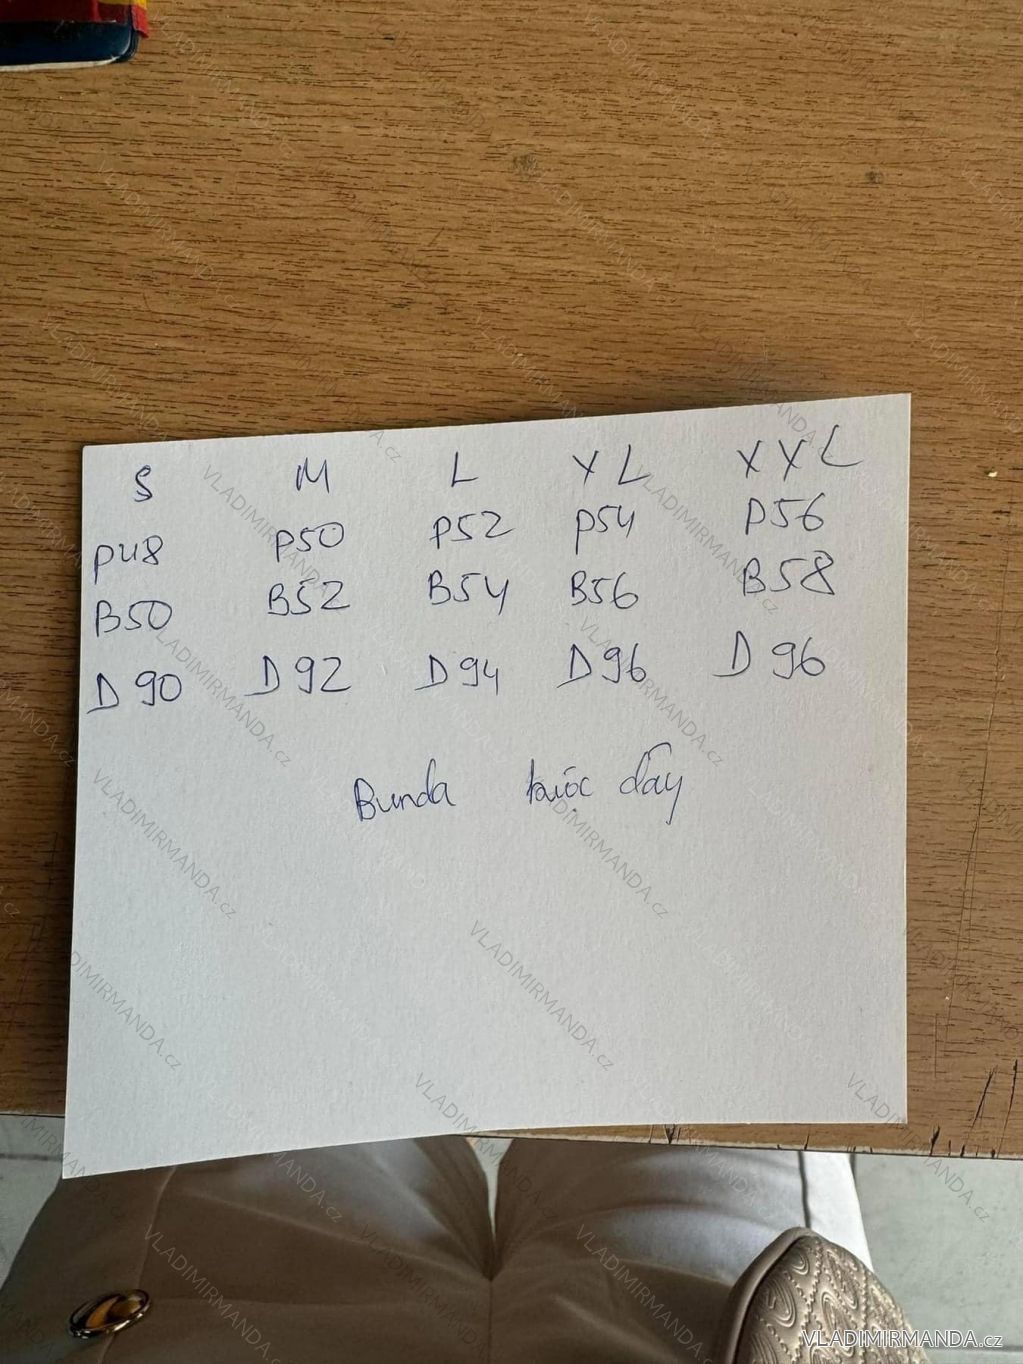 S M L XL XXL
P48 P50 P52 P54 P56
B50 B52 B54 B56 B58
D90 D92 D94 D96 D96
Bunda day
VLADIMIRMANDA.cz